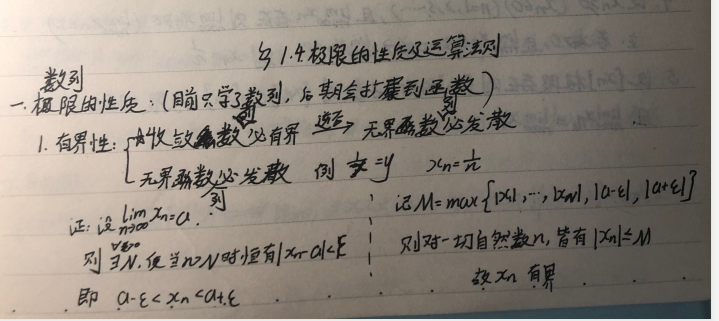 §1.4.极限的性质及运算法则
数列
一.极限的性质:(目前只学了数列,后期会扩展到函数)
1.有界性:{收敛数列必有界 逆否→ 无界数列必发散
无界数列必发散 例 1/x=y xn=1/n
证:设 lim n→∞ xn=a.
∀ε>0
则∃N.使当n>N时恒有|xn-a|<ε
即 a-ε<xn<a+ε
记M=max{|x1|,…,|xN|,|a-ε|,|a+ε|}
则对一切自然数n,皆有|xn|≤M
故xn有界